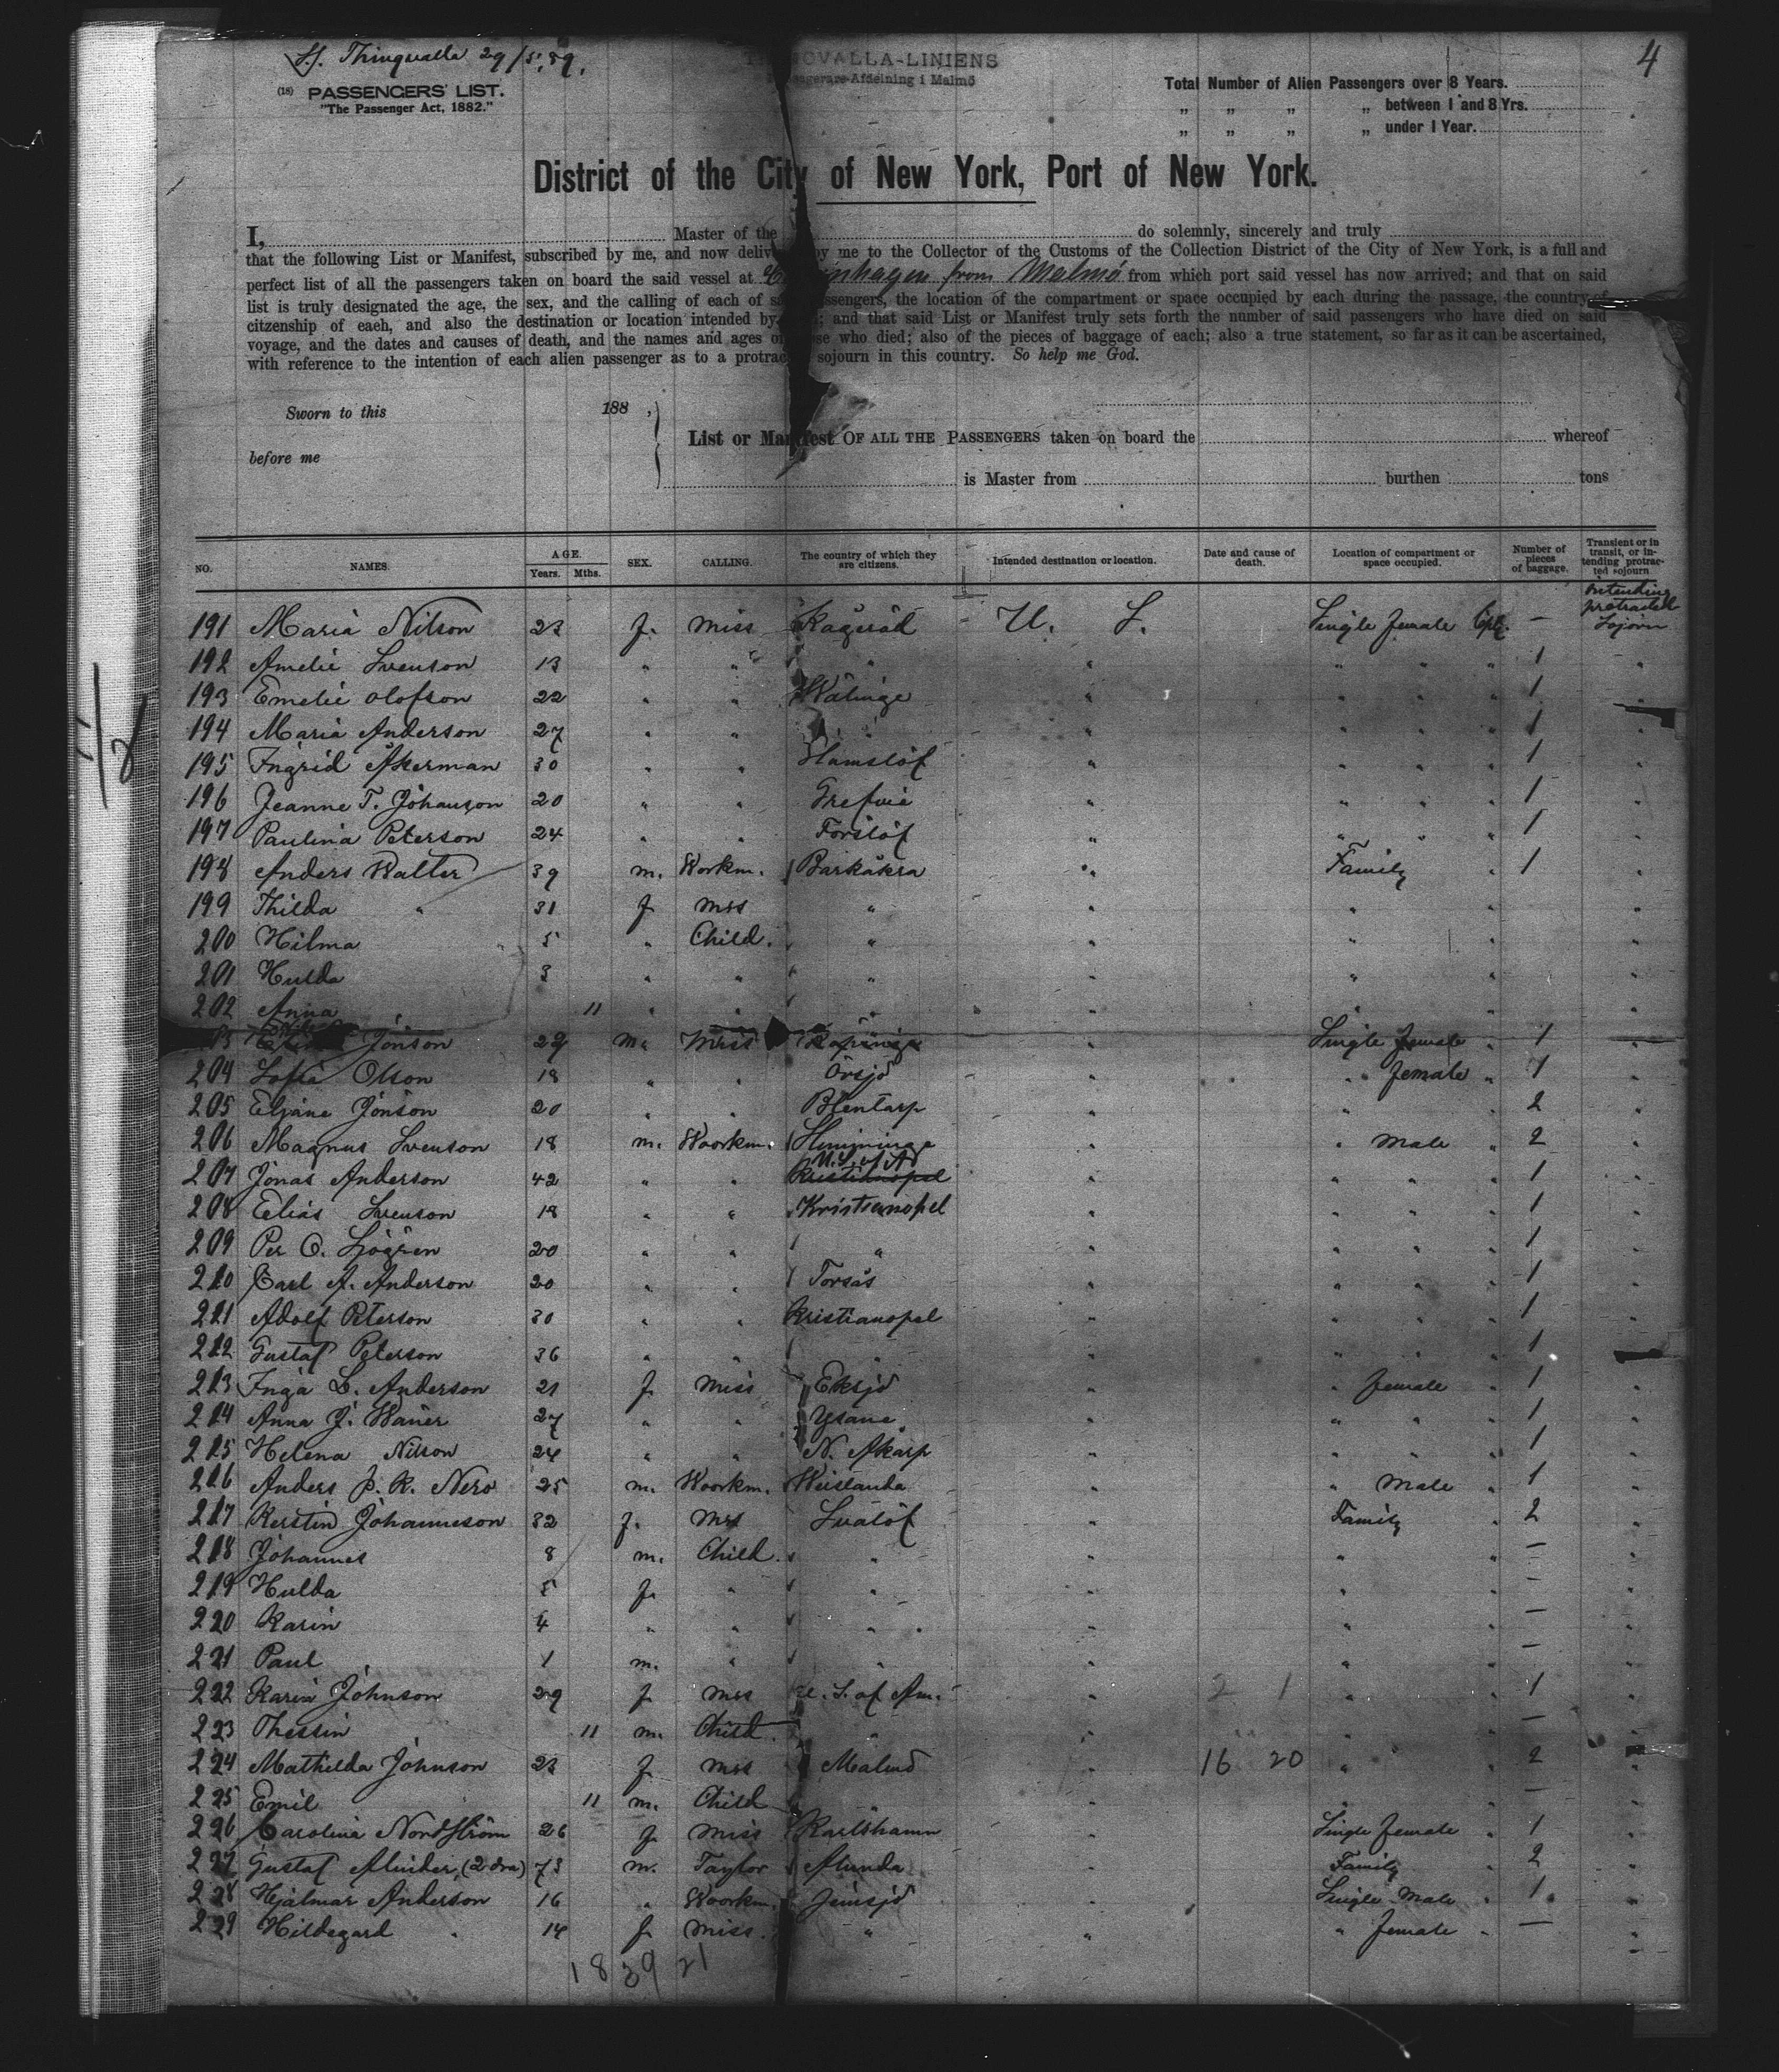 S/S. Thingvalla 29/5. 89.
4
(18) PASSENGERS' LIST.
"The Passenger Act, 1882."
OVALLA-LINIENS
Afdelning i Malmö
Total Number of Alien Passengers over 8 Years.
„ „ „ „ between 1 and 8 Yrs.
„ „ „ „ under 1 Year.
District of the City of New York, Port of New York.
I, Master of the do solemnly, sincerely and truly
that the following List or Manifest, subscribed by me, and now deliv by me to the Collector of the Customs of the Collection District of the City of New York, is a full and
perfect list of all the passengers taken on board the said vessel at C nhagen from Malmö from which port said vessel has now arrived; and that on said
list is truly designated the age, the sex, and the calling of each of s ssengers, the location of the compartment or space occupied by each during the passage, the country of
citzenship of eaeh, and also the destination or location intended by ; and that said List or Manifest truly sets forth the number of said passengers who have died on said
voyage, and the dates and causes of death, and the names and ages o se who died; also of the pieces of baggage of each; also a true statement, so far as it can be ascertained,
with reference to the intention of each alien passenger as to a protrac sojourn in this country. So help me God.
Sworn to this 188 ,
before me
List or Manifest OF ALL THE PASSENGERS taken on board the whereof
is Master from burthen tons
NO. NAMES. AGE. Years. Mths. SEX. CALLING. The country of which they are citizens. Intended destination or location. Date and cause of death. Location of compartment or space occupied. Number of pieces of baggage. Transient or in transit, or intending protracted sojourn
191 Maria Nilson 23 f. Miss Kågeröd U. S. Single female Cpt. — intending protracted Sojorn
192 Amelie Svenson 13 " " " " " " " 1 "
193 Emelie Olofson 22 " " Wälinge " " " " 1 "
194 Maria Anderson 27 " " " " " " 1 "
195 Ingrid Åkerman 30 " " Hamslöf " " " " 1 "
196 Jeanne T. Johanson 20 " " Grefvie " " " " 1 "
197 Paulina Peterson 24 " " Förslöf " " " " 1 "
198 Anders Walter 39 m. Workm. Barkåkra " Family " 1 "
199 Thilda " 31 f. Mrs " " " " "
200 Hilma 5 " Child. " " " " "
201 Hulda 3 " " " " " " "
202 Anna 11 " " " " " " "
Jönson 29 m. Miss Single female " 1 "
204 Sofia Olson 18 " " Örsjö " " female " 1 "
205 Eljane Jönson 20 " " Blentarp " " " 2 "
206 Magnus Svenson 18 m. Woorkm. " " Male " 2 "
207 Jonas Anderson 42 " " U.S. of A Kristianopel " " " " 1 "
208 Elias Svenson 18 " " Kristianopel " " " " 1 "
209 Per O. Sjögren 20 " " " " " " " 1 "
210 Carl A. Anderson 20 " " Torsås " " " " 1 "
211 Adolf Peterson 30 " " Kristianopel " " " " 1 "
212 Gustaf Peterson 36 " " " " " " " 1 "
213 Inga L. Anderson 21 f. Miss Eksjö " " female " 1 "
214 Anna J. Waner 27 " " Ysane " " " " 1 "
215 Helena Nilson 24 " " N. Åkarp " " " " 1 "
216 Anders P. K. Nero 25 m. Woorkm. Weislanda " " Male " 1 "
217 Kerstin Johanneson 32 f. Mrs Svalöf " Family " 2 "
218 Johannes 8 m. Child. " " " " — "
219 Hulda 5 f. " " " " " — "
220 Karin 4 " " " " " " — "
221 Paul 1 m. " " " " " — "
222 Karin Johnson 29 f. Mrs U. S. of Am. " 2 1 " " 1 "
223 11 m. Child " " " " — "
224 Mathilda Johnson 23 f. Mrs Malmö " 16 20 " " 2 "
225 Emil 11 m. Child " " " " — "
226 Carolina Nordström 26 f. Miss Karlshamn " Single female " 1 "
227 Gustaf (2 dra) 73 m. Taylor Alunda " Family " 2 "
228 Hjalmar Anderson 16 " Woorkm. Jemsjö " Single Male " 1 "
229 Hildegard " 14 f. Miss. " " " female " — "
18 39 21